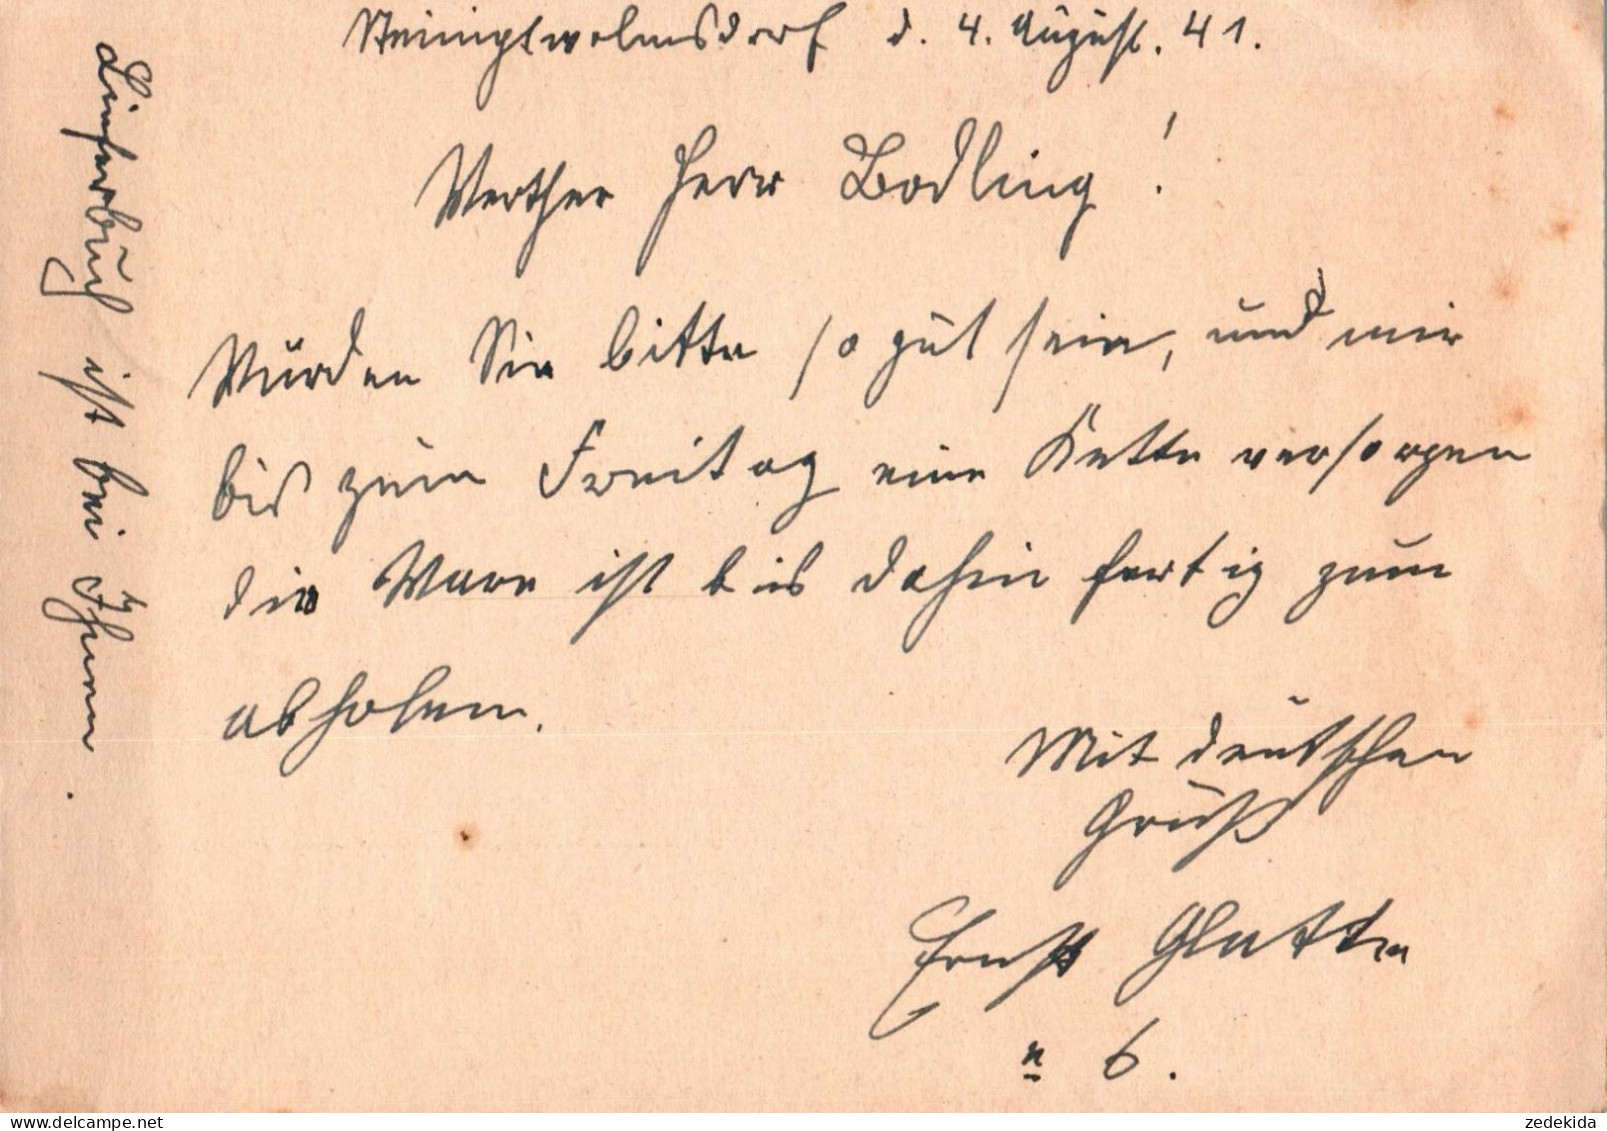 Steinigtwolmsdorf d. 4. August. 41.
Werther Herr Bodling!
Würden Sie bitte so gut sein, und mir
bis zum Freitag eine Kette versorgen
die Ware ist bis dahin fertig zum
abholen.
Mit deutschen
Gruß
Ernst Glatte
n 6.
Lieferbuch ist bei Ihnen.
delcampe.net
zedekida